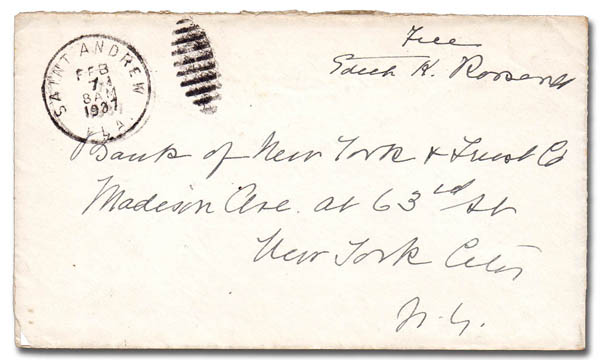 SAINT ANDREW
FEB
8AM
1937
FLA.
Free
Edith K. Roosevelt
Bank of New York & Trust Co
Madison Ave. at 63rd St
New York City
N.Y.